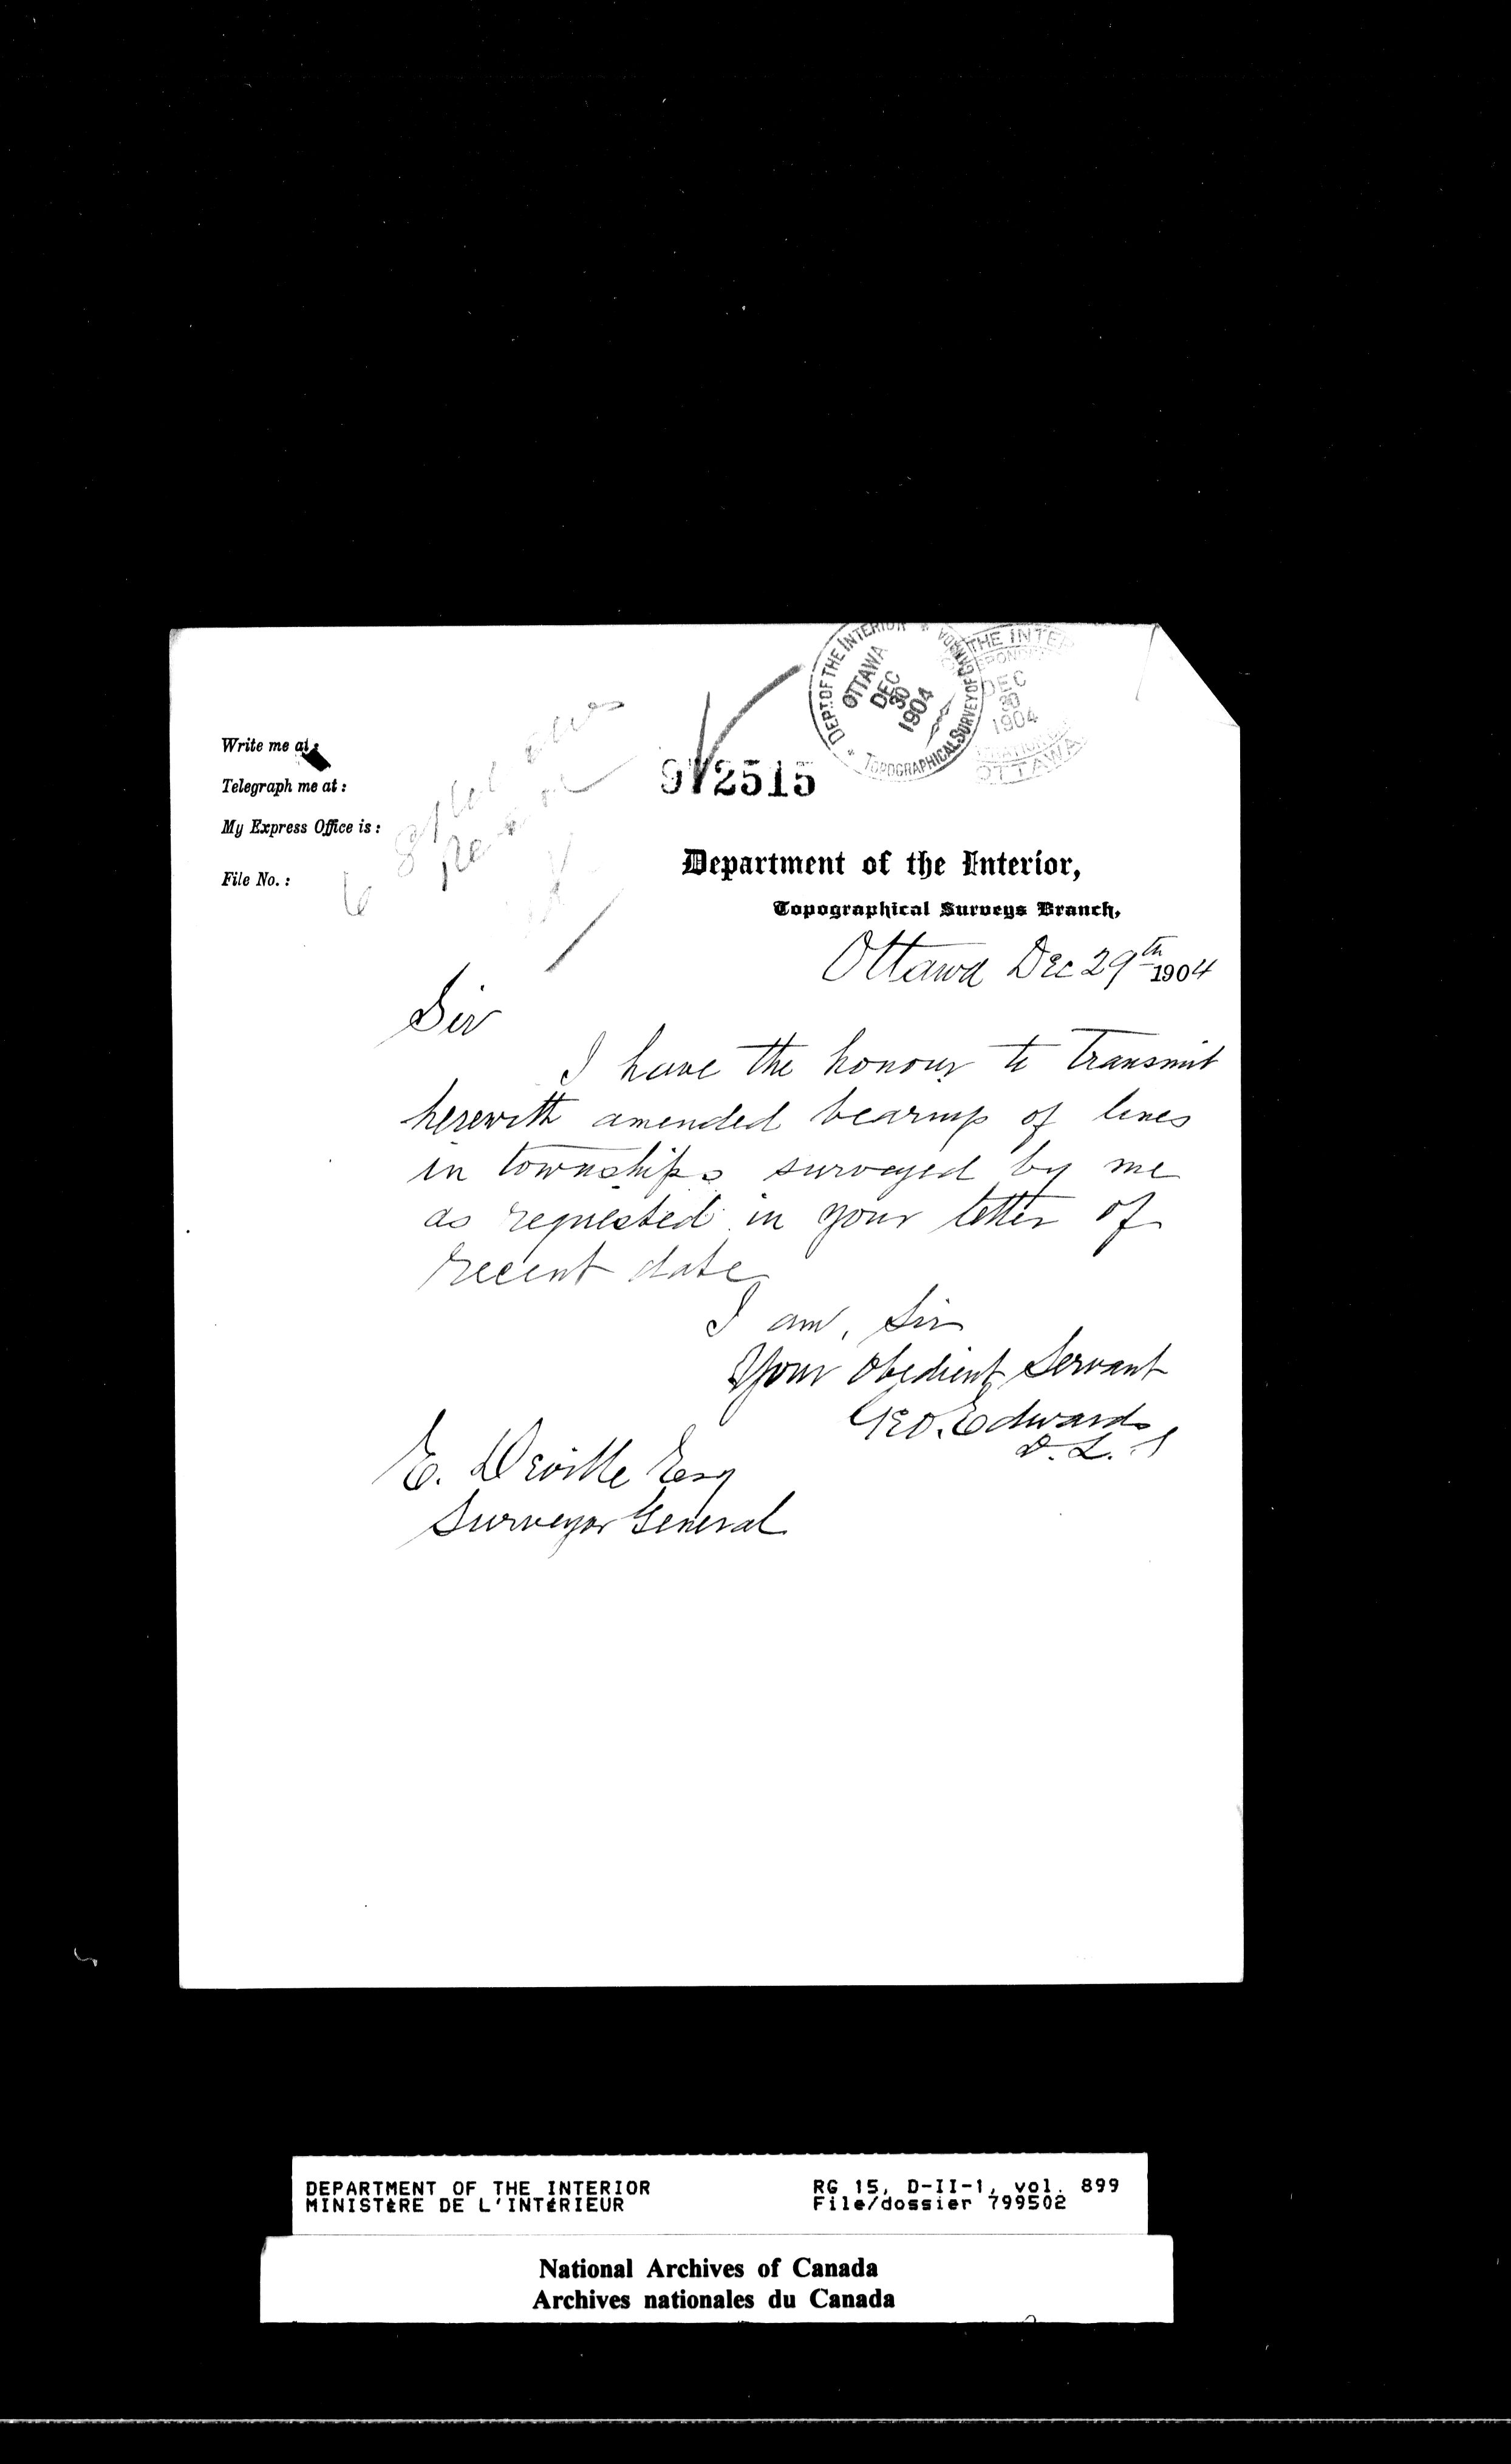 DEPT. OF THE INTERIOR * TOPOGRAPHICAL SURVEY OF CANADA *
OTTAWA
DEC
30
1904
THE INTER
DEC
30
1904
OTTAWA
Write me at :
Telegraph me at :
My Express Office is :
File No. :
2515
Department of the Interior,
Topographical Surveys Branch,
Ottawa Dec 29th 1904
Sir
I have the honour to transmit
herewith amended bearings of lines
in townships surveyed by me
as requested in your letter of
recent date
I am, Sir
Your Obedient Servant
Geo. Edwards
D. L. S
E. Deville Esq
Surveyor General
DEPARTMENT OF THE INTERIOR
MINISTÈRE DE L'INTÉRIEUR
RG 15, D-II-1, vol. 899
File/dossier 799502
National Archives of Canada
Archives nationales du Canada